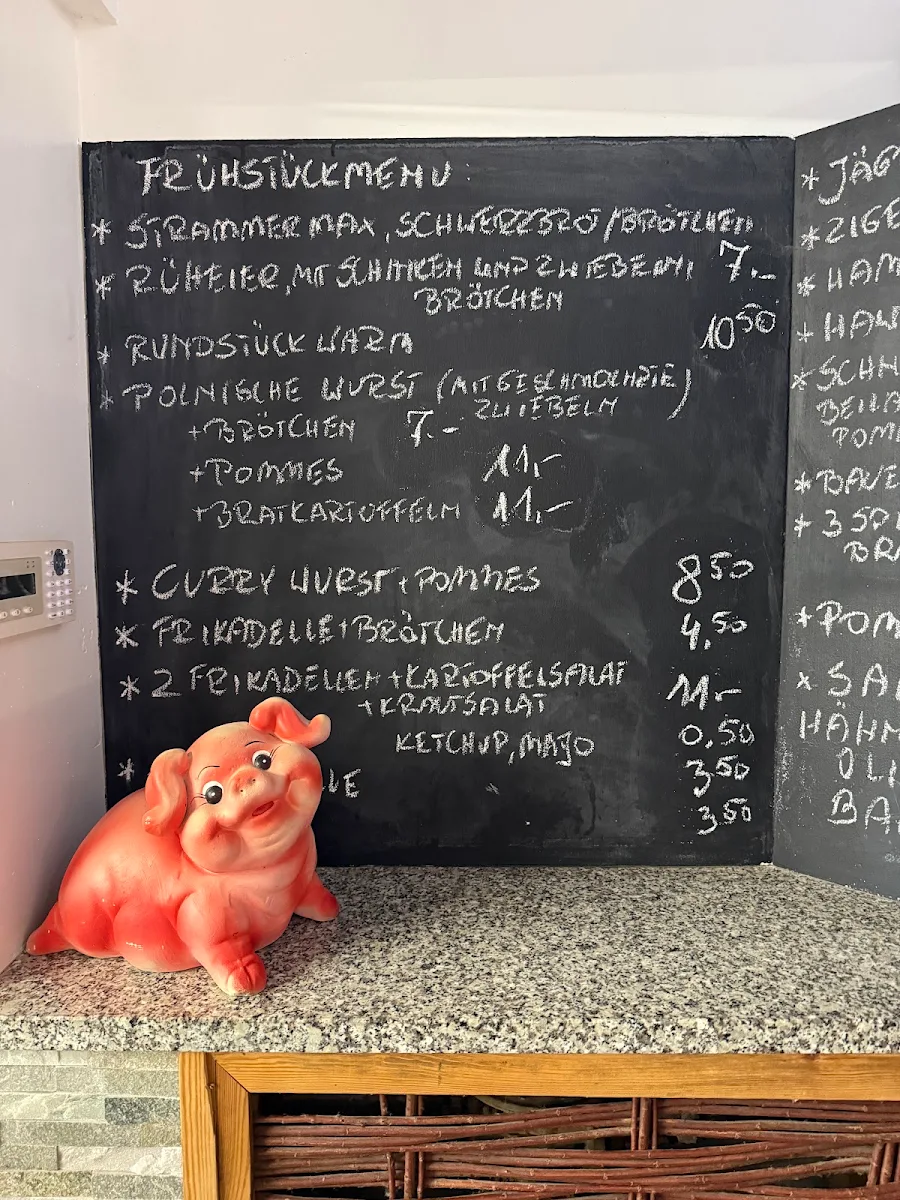 FRÜHSTÜCKMENU:
* STRAMMER MAX, SCHWERZBRÖ/BRÖTCHEN
7.-
* RÜHEIER, MT SCHINKEN UND ZWIEBELN,
BRÖTCHEN
10 50
* RUNDSTÜCK WARM
* POLNISCHE WURST (MIT GESCHMOCHZTE)
ZWIEBELN
+BRÖTCHEN 7.-
+POMMES 11,-
+BRATKARTOFFELN 11,-
* CURRY WURST+POMMES 8 50
* FRIKADELLE+BRÖTCHEN 4,50
* 2 FRIKADELLEN+KARTOFFELSALAT
+KRAUTSALAT 11-
KETCHUP, MAJO 0,50
* 3,50
LE 3,50
* JÄG
* ZIGE
* HAM
* HAW
* SCHN
BEILA
POMM
* BAUE
+ 350
BRA
+POM
x SAL
HÄHN
OLI
BA